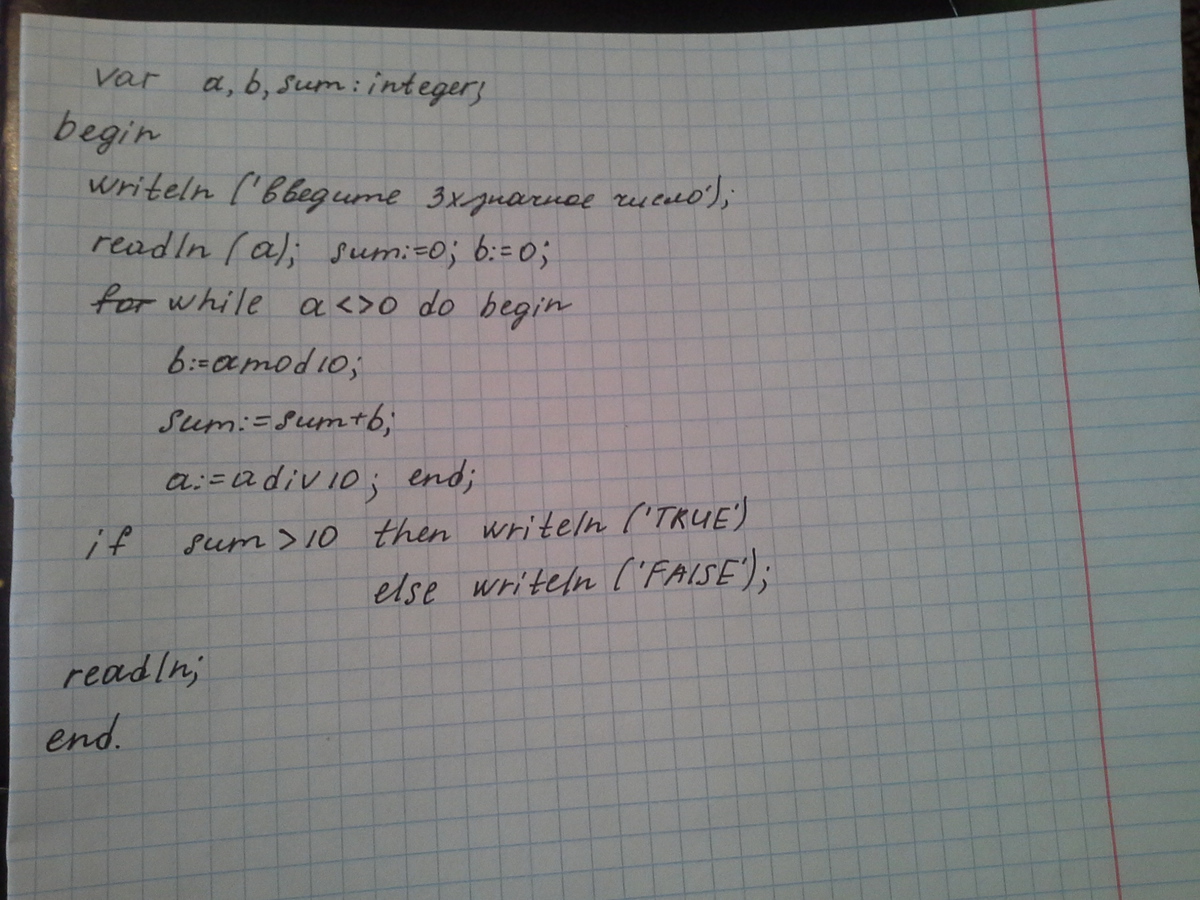 var a, b, sum : integer;
begin
writeln ('введите 3хзначное число');
readln (a); sum:=0; b:=0;
for while a<>0 do begin
b:=a mod 10;
sum:=sum+b;
a:=a div 10; end;
if sum>10 then writeln ('TRUE')
else writeln ('FALSE');
readln;
end.